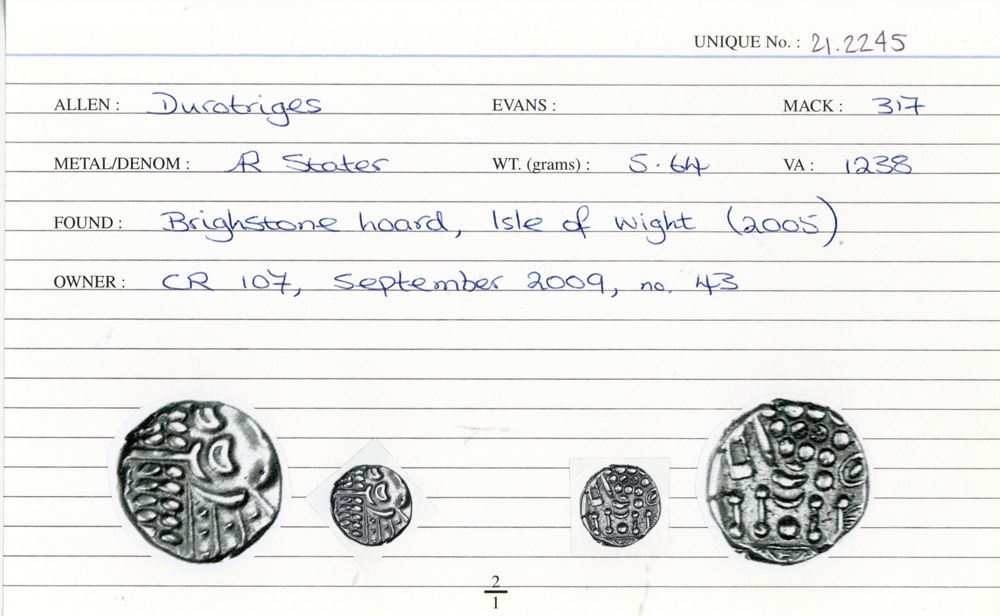 UNIQUE No. : 21.2245
ALLEN : Durotriges EVANS : MACK : 317
METAL/DENOM : AR Stater WT. (grams) : 5.64 VA : 1238
FOUND : Brighstone hoard, Isle of Wight (2005)
OWNER : CR 107, September 2009, no. 43
2
1